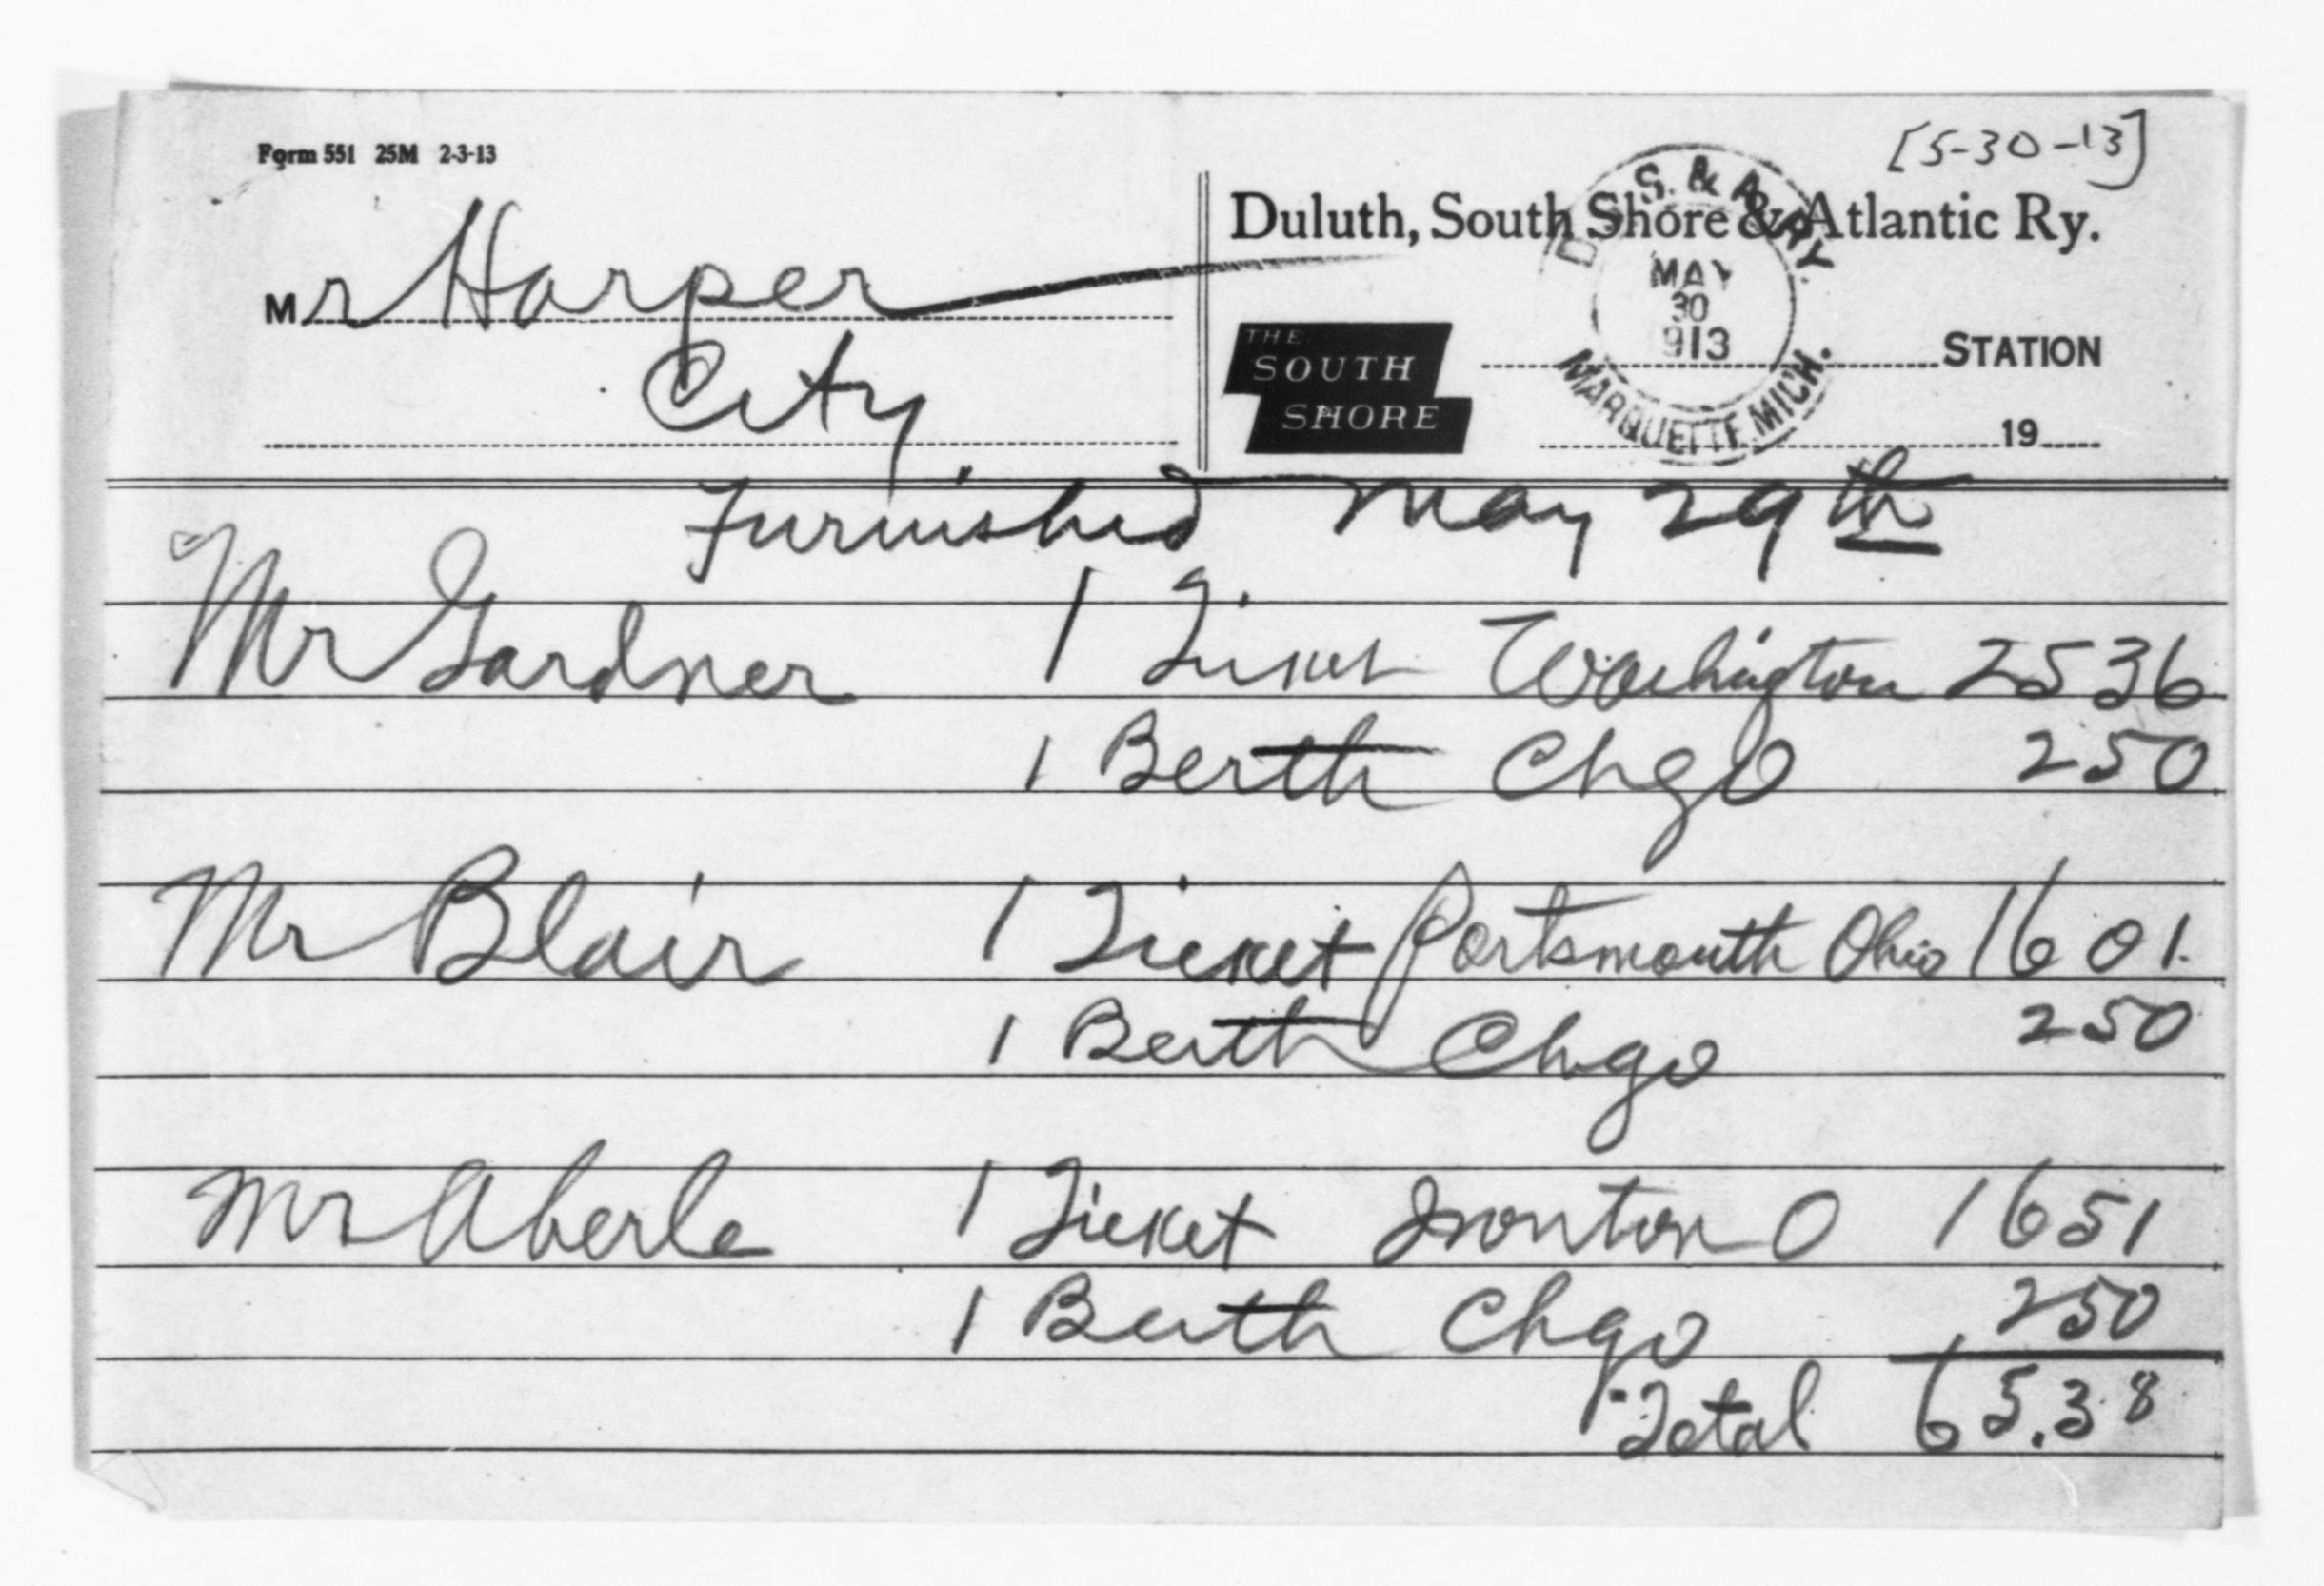 [5-30-13]
Form 551 25M 2-3-13
Mr Harper
City
Duluth, South Shore & Atlantic Ry.
THE
SOUTH
SHORE
D. S. S. & A. RY.
MAY
30
1913
MARQUETTE, MICH.
STATION
19
Furnished May 29th
Mr Gardner 1 Ticket Washington 2536
1 Berth Chgo 250
Mr Blair 1 Ticket Portsmouth Ohio 1601
1 Berth Chgo 250
Mr Aberle 1 Ticket Ironton O 1651
1 Berth Chgo 250
Total 65.38